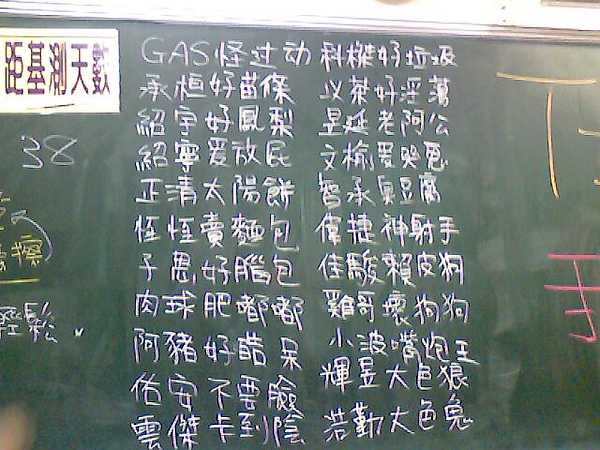 距基測天數
38
輕鬆
GAS怪过动
承恒好苗條
紹宇好鳳梨
紹寧爱放屁
正清太陽餅
恆恆賣麵包
子恩好腦包
肉球肥嘟嘟
阿豬好酷呆
佑安不要臉
雲傑卡到陰
科樑好垃圾
以荼好淫蕩
昱延老阿公
文榆爱哭鬼
智承臭豆腐
偉捷神射手
佳駿賴皮狗
雞哥壞狗狗
小波嘴炮王
輝昱大色狼
若勤大色鬼